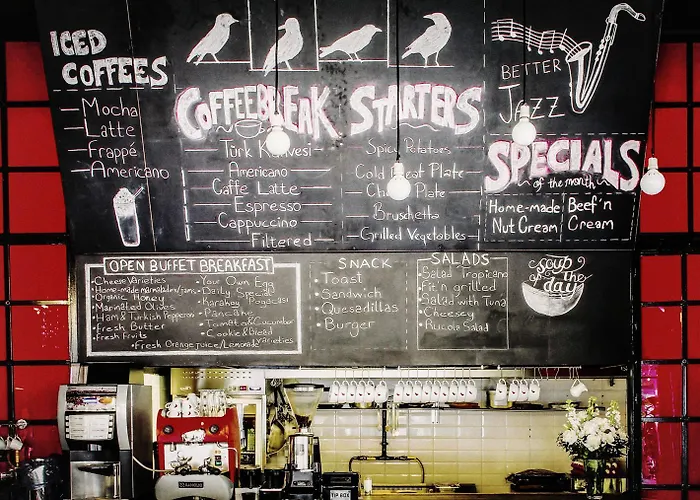 ICED
COFFEES
Mocha
Latte
Frappé
Americano
COFFEEBREAK
Türk Kahvesi
Americano
Caffe Latte
Espresso
Cappuccino
Filtered
STARTERS
Spicy Potatoes
Cold Meat Plate
Plate
Bruschetta
Grilled Vegetables
BETTER
JAZZ
SPECIALS
of the month
Home-made
Nut Cream
Beef'n
Cream
OPEN BUFFET BREAKFAST
Cheese Varieties
Home-made marmalades/jams
Organic Honey
Marinated Olives
Ham & Turkish Pepperoni
Fresh Butter
Fresh Fruits
Your Own Egg
Daily Special
Karakoy
Pancake
Tomato & Cucumber
Cookie & Bread
varieties
Fresh Orange juice/Lemonade
SNACK
Toast
Sandwich
Quesadillas
Burger
SALADS
Salad Tropicano
Fit'n grilled
Salad with Tuna
Cheesey
Rucola Salad
soup
of the
day
TIP BOX